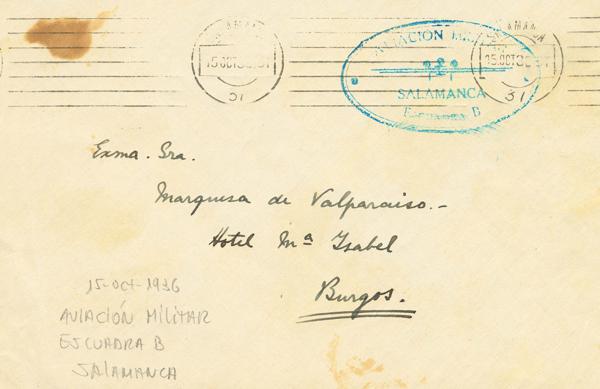 SALAMANCA
15.OCT36.
31
AVIACION MILITAR
SALAMANCA
ESCUADRA B
15.OCT36.
31
Exma. Sra.
Marquesa de Valparaiso.-
Hotel Mª Isabel
Burgos.
15-OCT-1936
AVIACIÓN MILITAR
ESCUADRA B
SALAMANCA